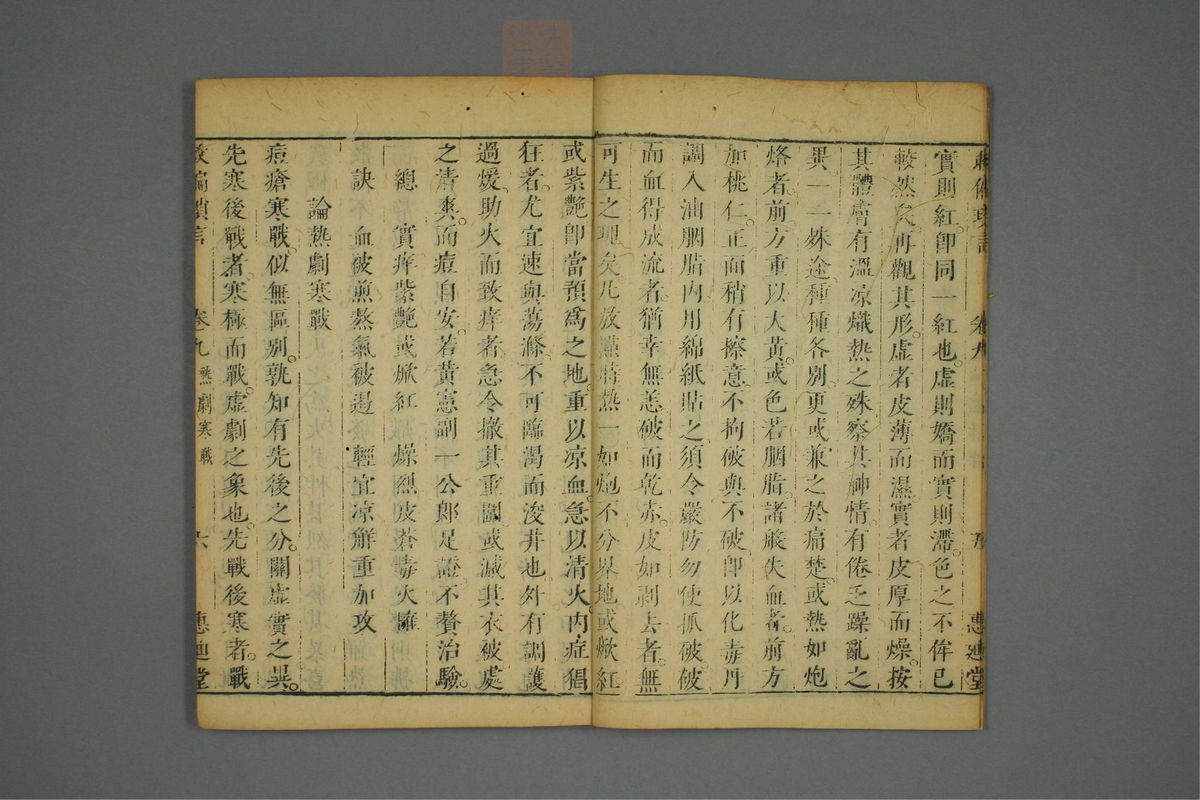 實則紅卽同一紅也虛則嬌而實則滯色之不侔已
較然矣再觀其形虛者皮薄而濕實者皮厚而燥按
其體膚有溫凉熾熱之殊察其神情有倦乏躁亂之
異一一殊途種種各別更或兼之於痛楚或熱如炮
烙者前方重以大黃或色若胭脂諸般失血者前方
加桃仁正面稍有擦意不拘破與不破卽以化毒丹
調入油胭脂內用綿紙貼之須令嚴防勿使抓破破
而血得成流者猶幸無恙破而乾赤皮如剥去者無
可生之理矣凡放𤑔時熱一如炮不分界地或焮紅
或紫艷卽當預爲之地重以凉血急以清火內症猖
狂者尤宜速與蕩滌不可臨渴而浚井也外有調護
過煖助火而致痒者急令撤其重圍或減其衣被處
之清爽而痘自安若黃憲副一公郎足證不贅治驗
總 實痒紫艷或焮紅 燥烈皮蒼毒火雍
訣 不血被煎熬氣被遏 輕宜凉解重加攻
論熱劇寒戰
痘瘡寒戰似無區別孰知有先後之分關虛實之異
先寒後戰者寒極而戰虛劇之象也先戰後寒者戰
救偏瑣言 卷九 熱劇寒戰 六 惠迪堂